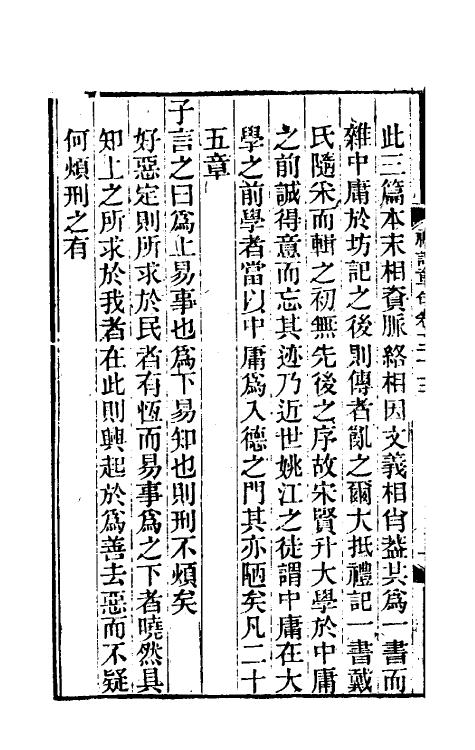 禮記章句卷三十三
此三篇本末相資脈絡相因文義相肖葢共爲一書而
雜中庸於坊記之後則傳者亂之爾大抵禮記一書戴
氏隨采而輯之初無先後之序故宋賢升大學於中庸
之前誠得意而忘其迹乃近世姚江之徒謂中庸在大
學之前學者當以中庸爲入德之門其亦陋矣凡二十
五章
子言之曰爲上易事也爲下易知也則刑不煩矣
好惡定則所求於民者有恆而易事爲之下者曉然具
知上之所求於我者在此則興起於爲善去惡而不疑
何煩刑之有